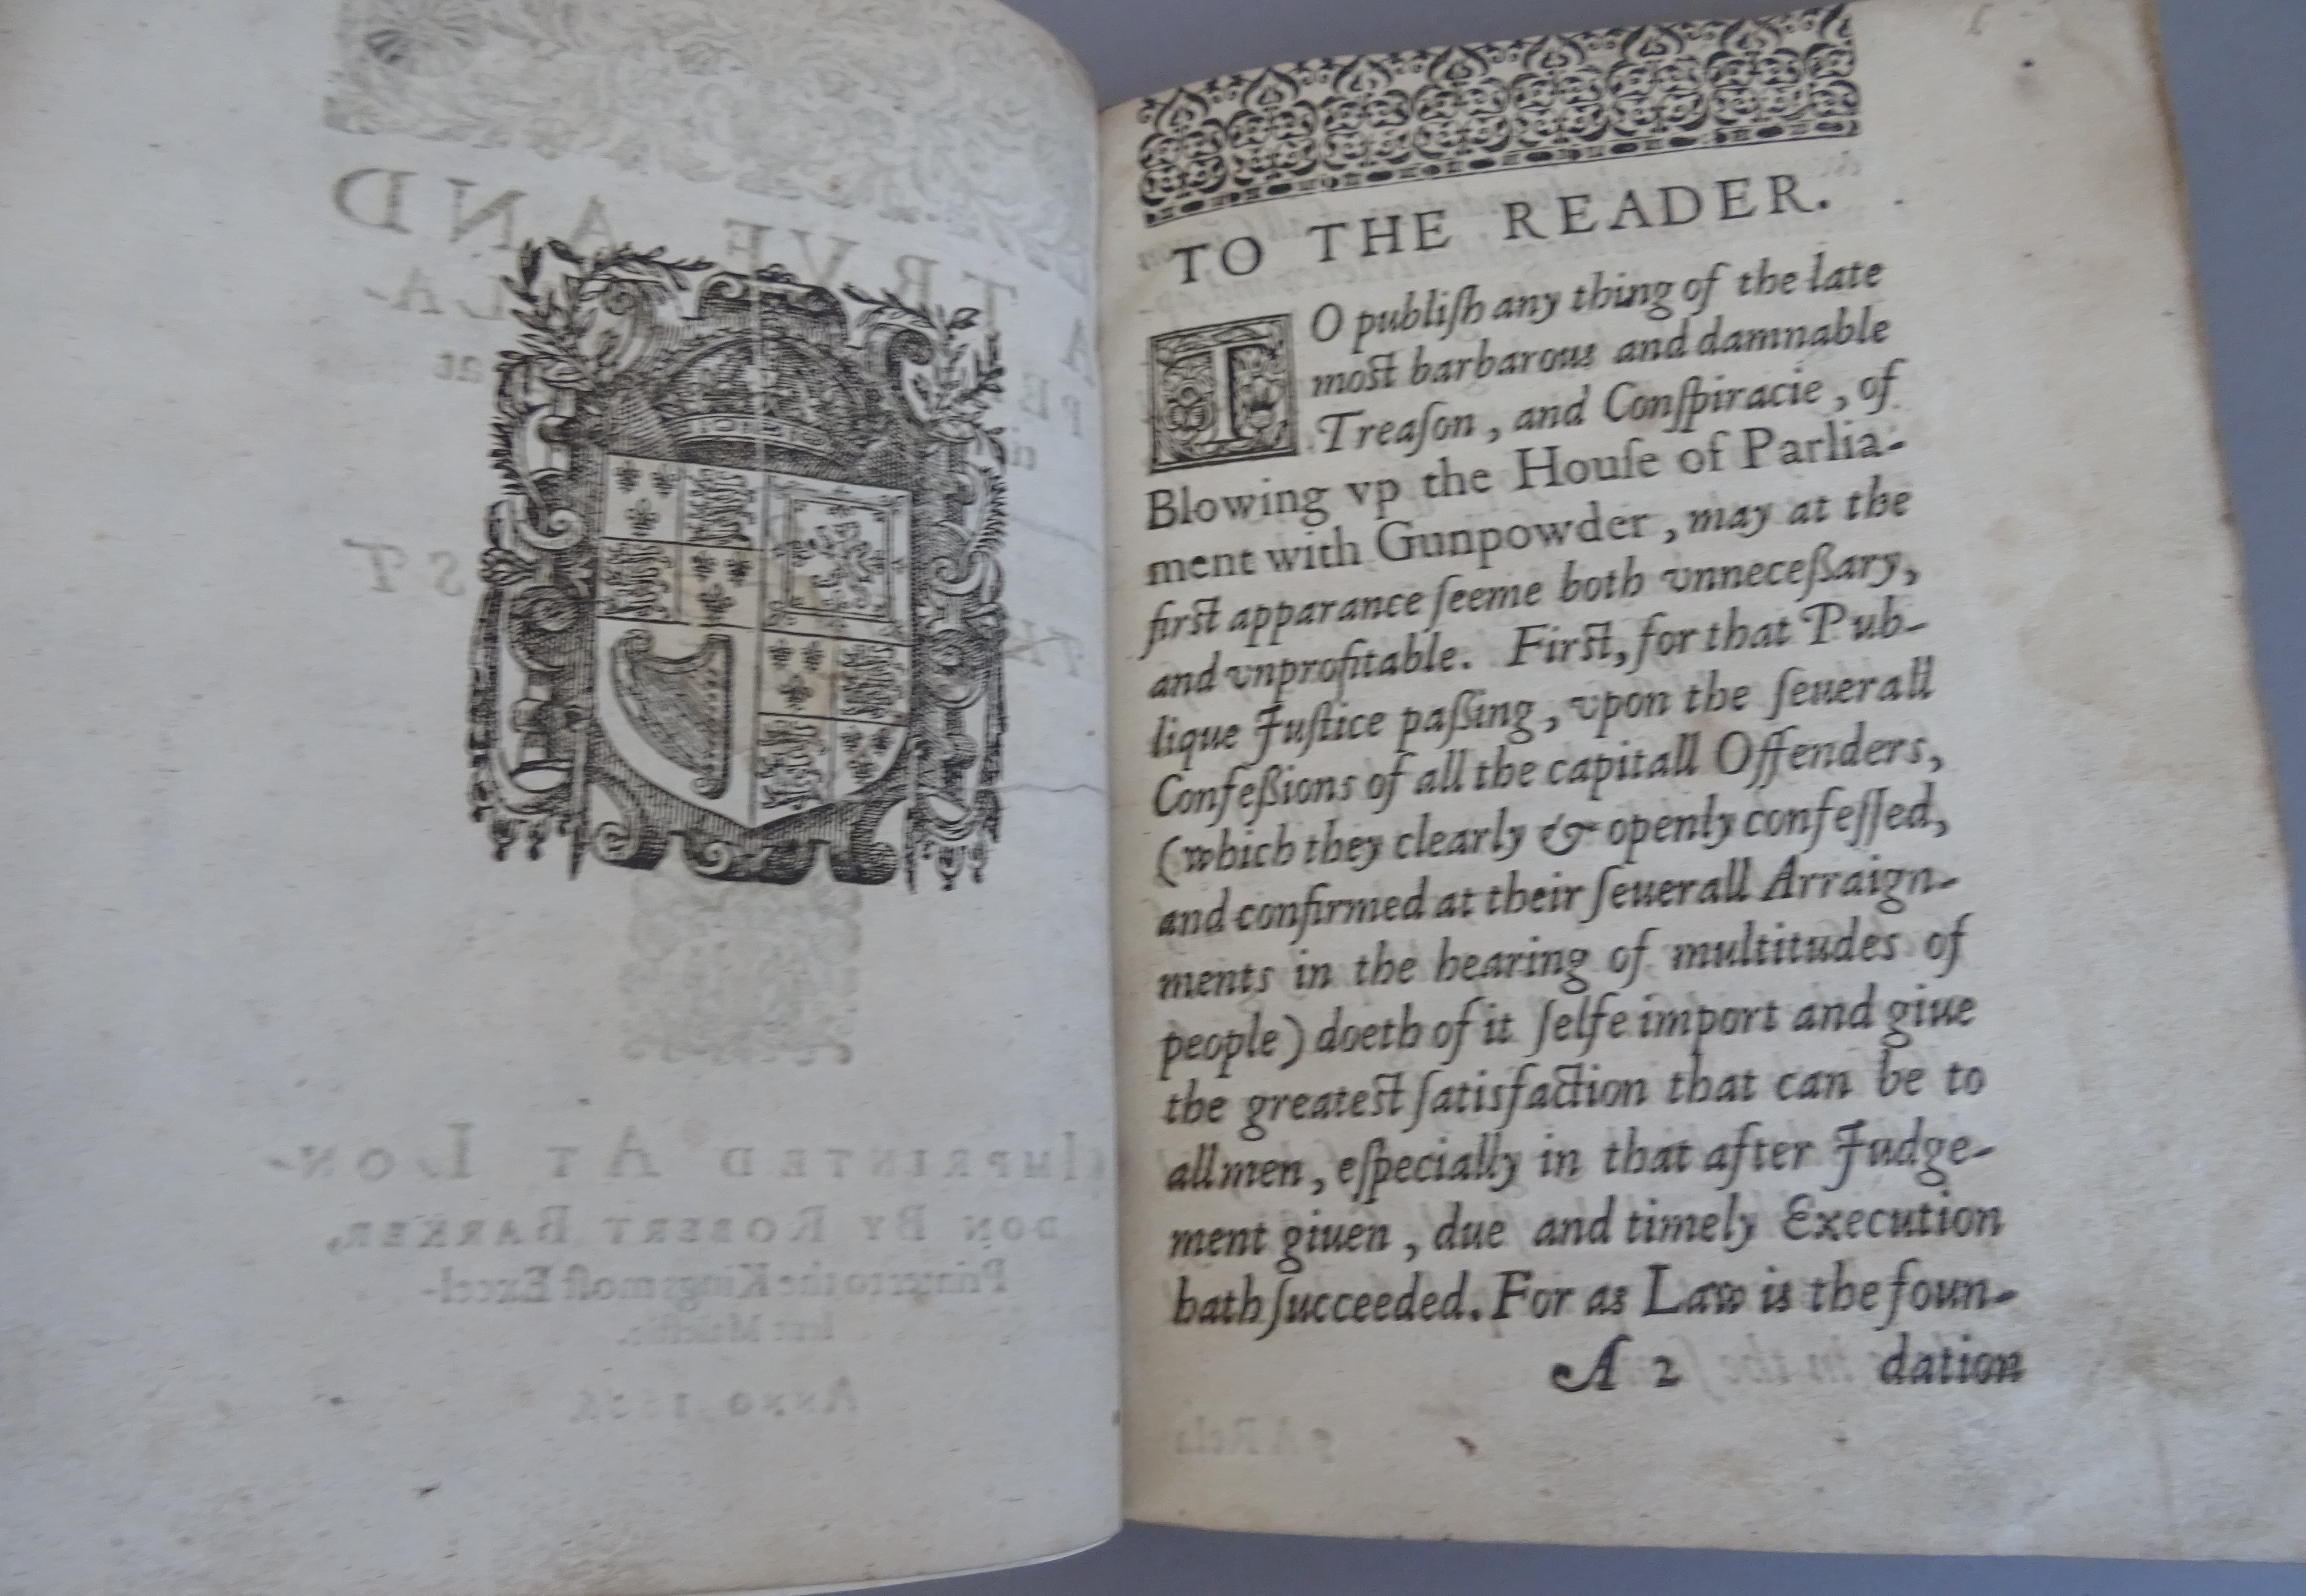 TO THE READER.
TO publiſh any thing of the late
moſt barbarous and damnable
Treaſon, and Conſpiracie, of
Blowing vp the Houſe of Parlia-
ment with Gunpowder, may at the
firſt apparance ſeeme both vnneceßary,
and vnprofitable. Firſt, for that Pub-
lique Juſtice paßing, vpon the ſeuerall
Confeßions of all the capitall Offenders,
(which they clearly & openly confeſſed,
and confirmed at their ſeuerall Arraign-
ments in the hearing of multitudes of
people) doeth of it ſelfe import and giue
the greateſt ſatisfaction that can be to
all men, eſpecially in that after Judge-
ment giuen, due and timely Execution
hath ſucceeded. For as Law is the foun-
A 2 dation
TRVE AND
IMPRINTED AT LON-
DON BY ROBERT BARKER,
Printer to the Kings moſt Excel-
ANNO